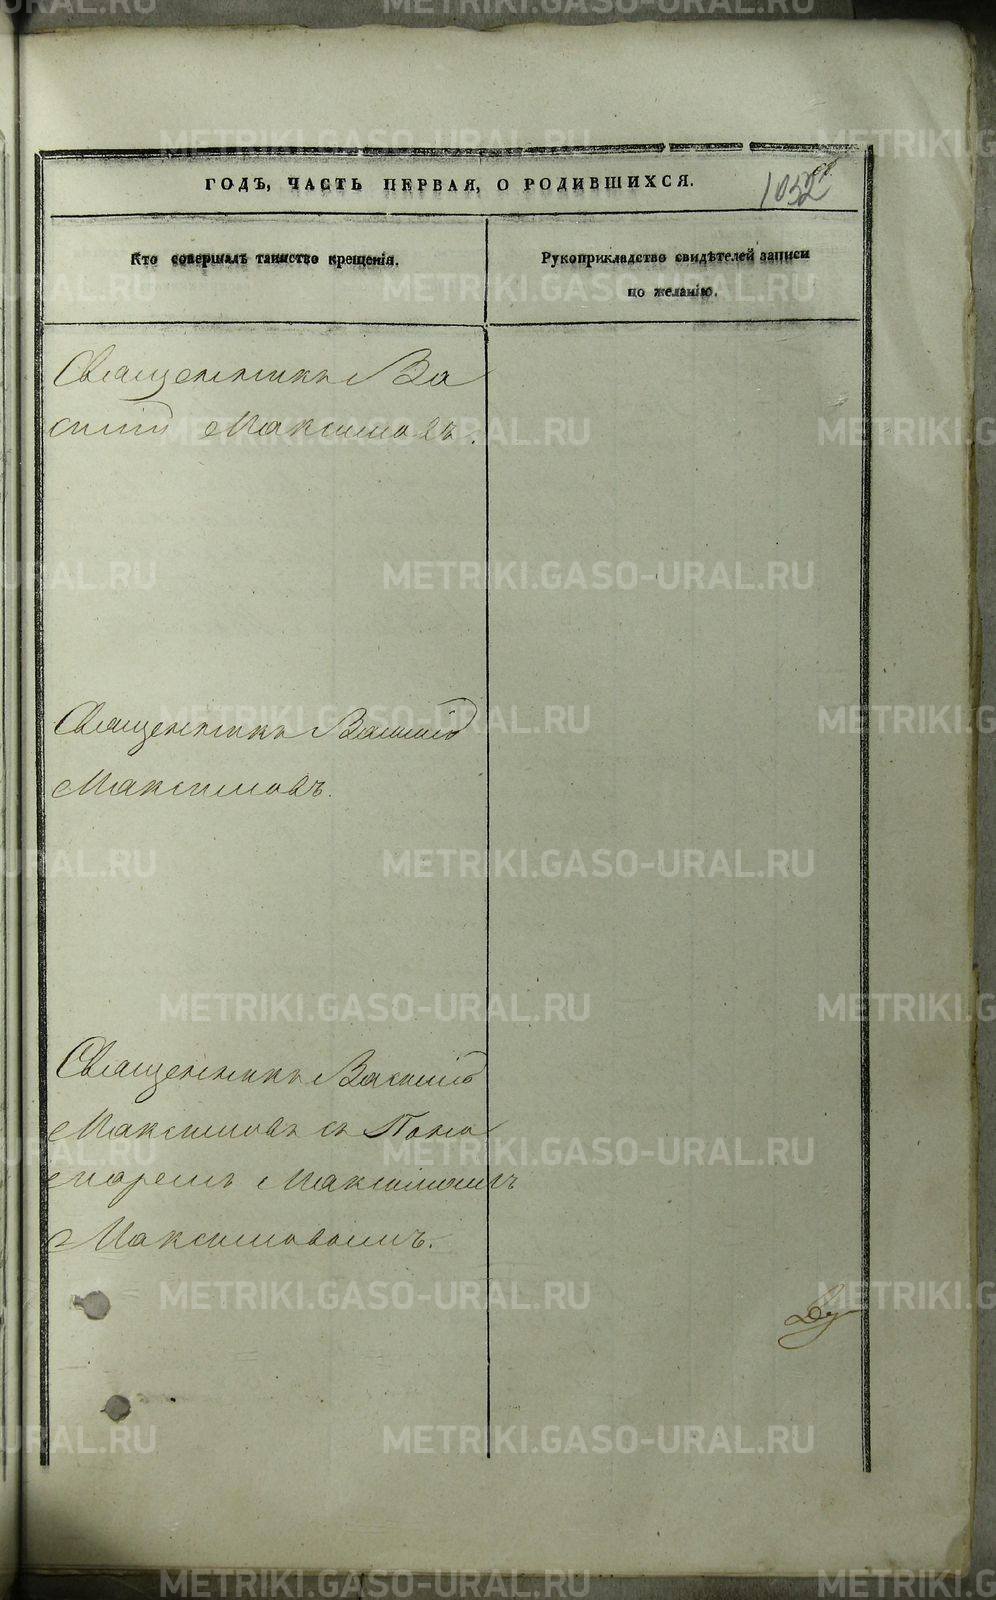 ГОДЪ, ЧАСТЬ ПЕРВАЯ, О РОДИВШИХСЯ.
1052
Кто совершалъ таинство крещенія.
Рукоприкладство свидѣтелей записи
по желанію.
Священникъ Ва
силій Максимовъ.
Священникъ Василій
Максимовъ.
Священникъ Василій
Максимовъ съ Поно
маремъ Максимомъ
Максимовымъ.
METRIKI.GASO-URAL.RU